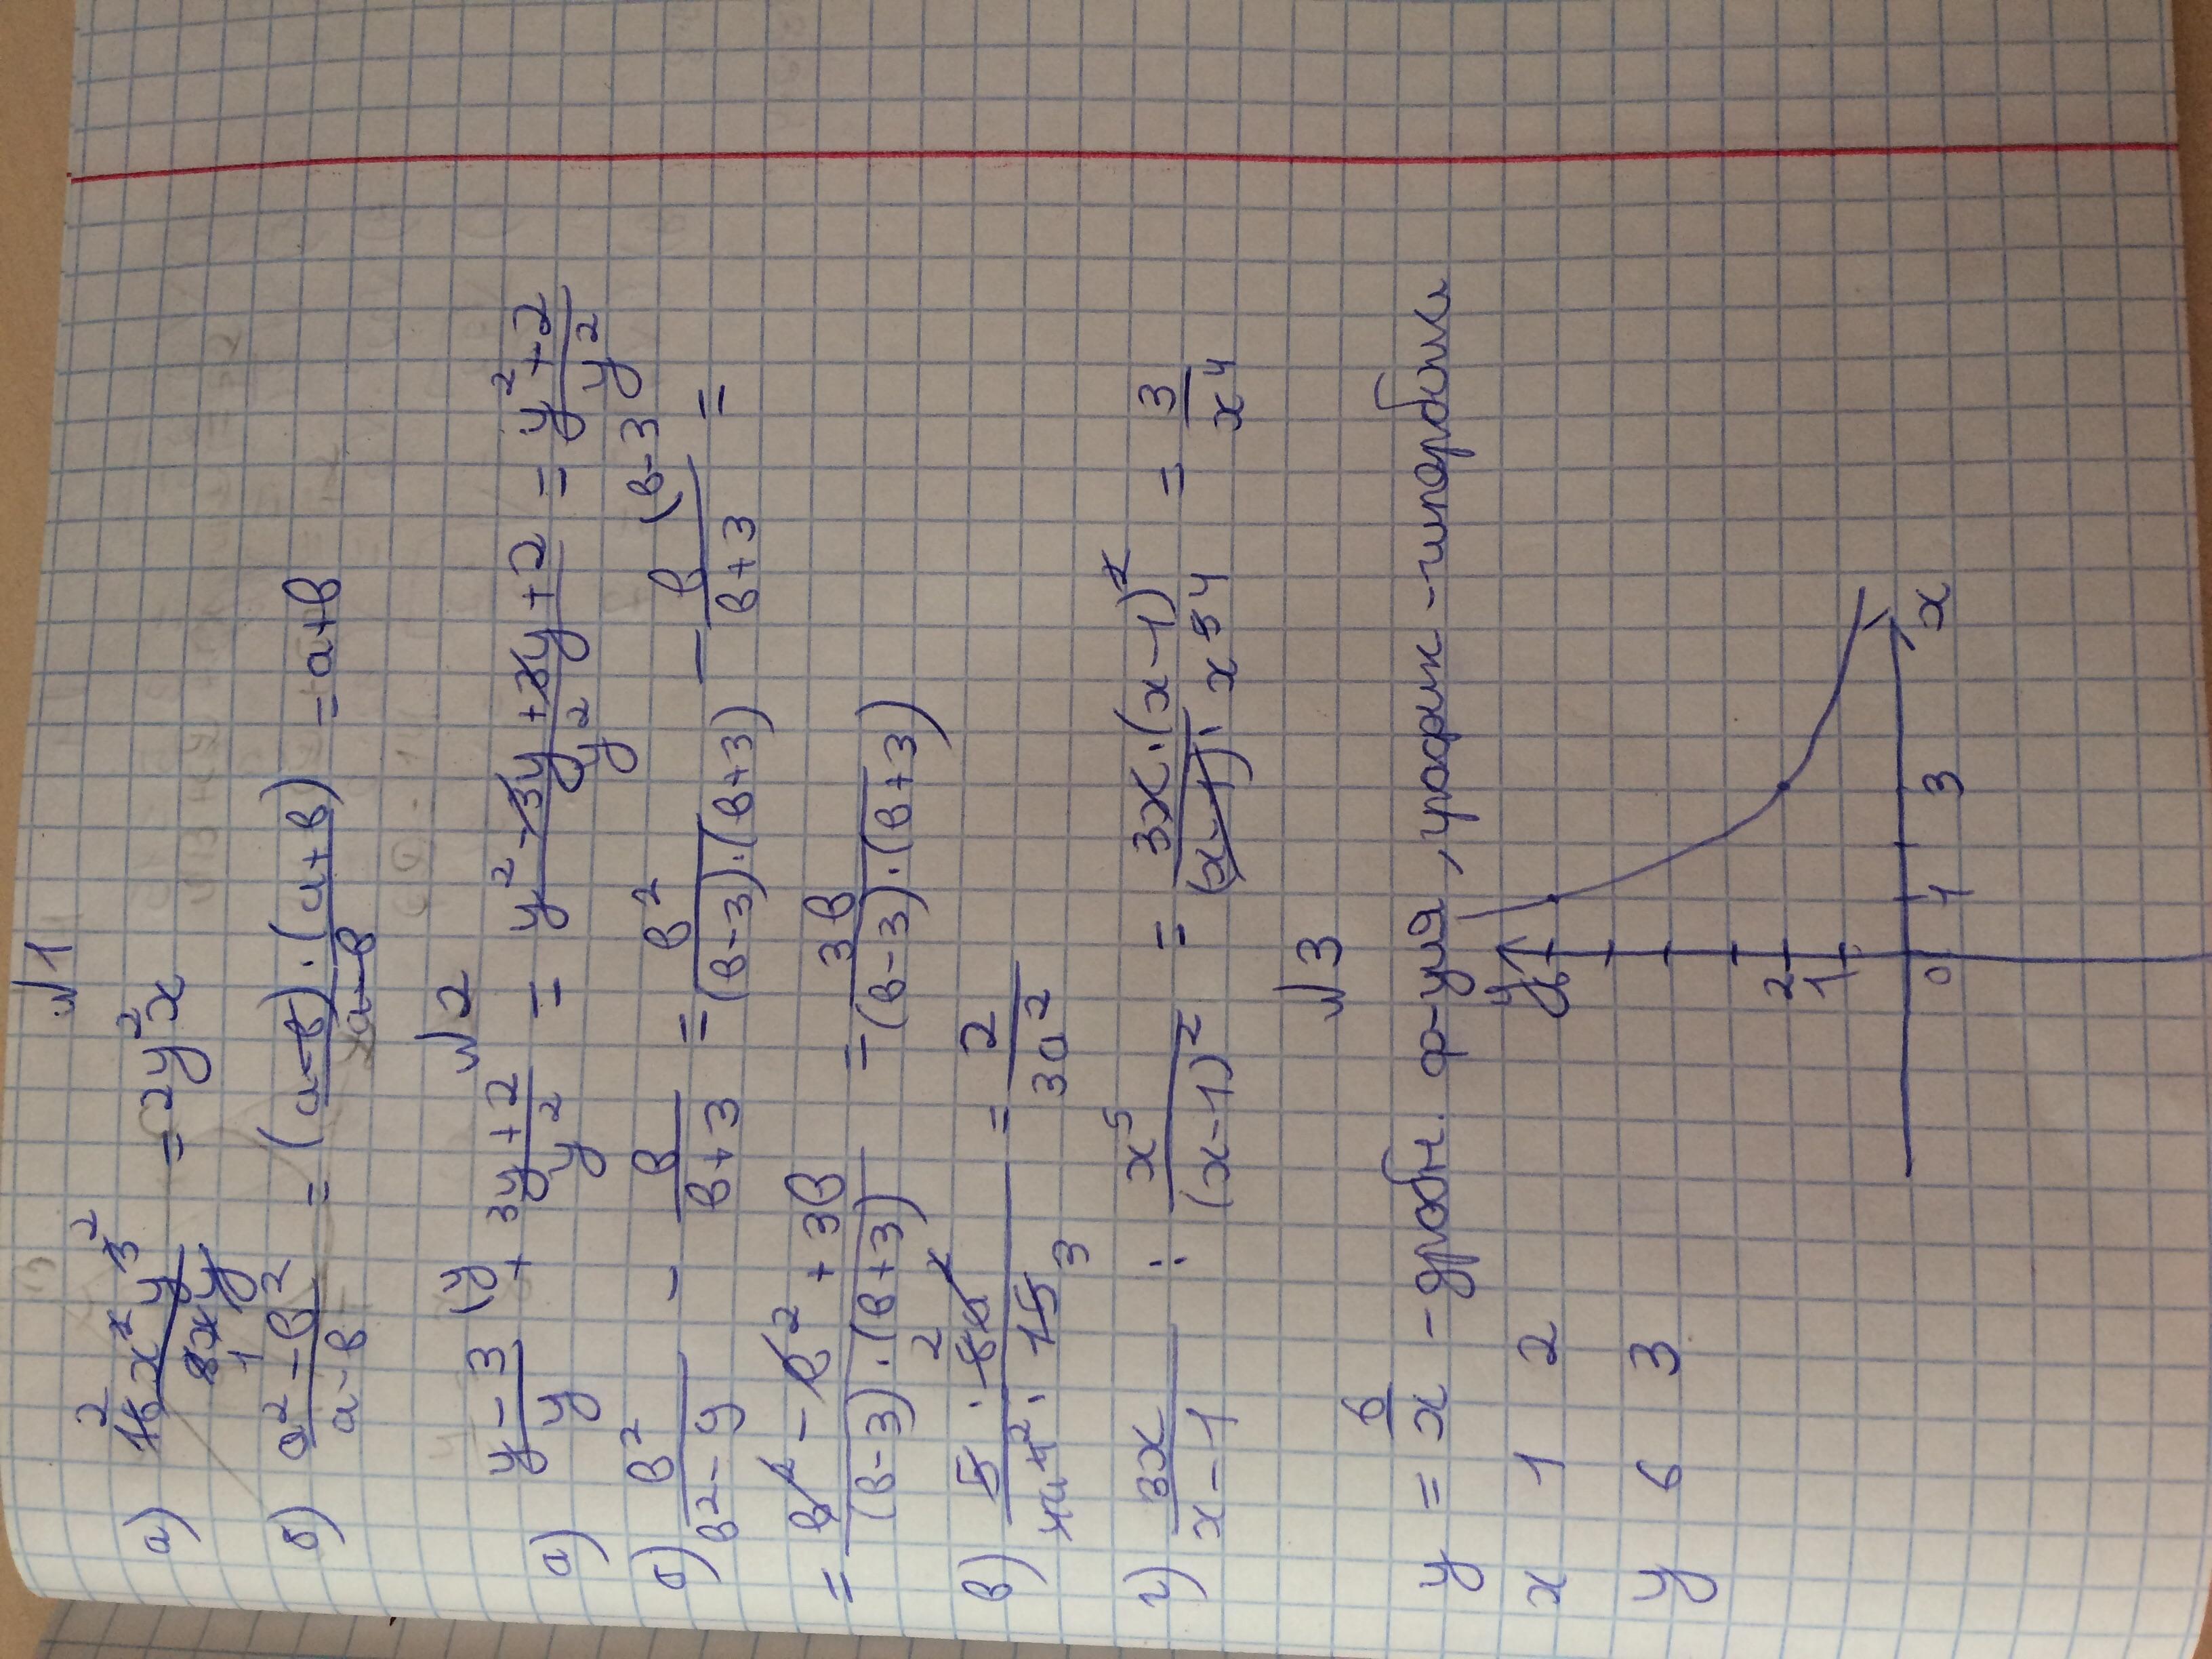 №1
а) 16x²y³ / 8xy = 2y²x
б) a² − b² / a − b = (a − b)·(a + b) / a − b = a + b
№2
а) y − 3 / y (y + 3y + 2 / y² = y² − 3y + 3y + 2 / y² = y² + 2 / y²
б) b² / b² − 9 − b / b + 3 = b² / (b − 3)·(b + 3) − b (b − 3 / b + 3 =
= b² − b² + 3b / (b − 3)·(b + 3) = 3b / (b − 3)·(b + 3)
в) = 2 / 3a²
г) 3x / x − 1 : x⁵ / (x − 1)² = 3x·(x − 1)² / (x − 1)·x⁵ ⁴ = 3 / x⁴
№3
y = 6 / x − дробн. ф-ция, график − гипербола
x 1 2
y 6 3
y
6
2
1
0 1 3 x